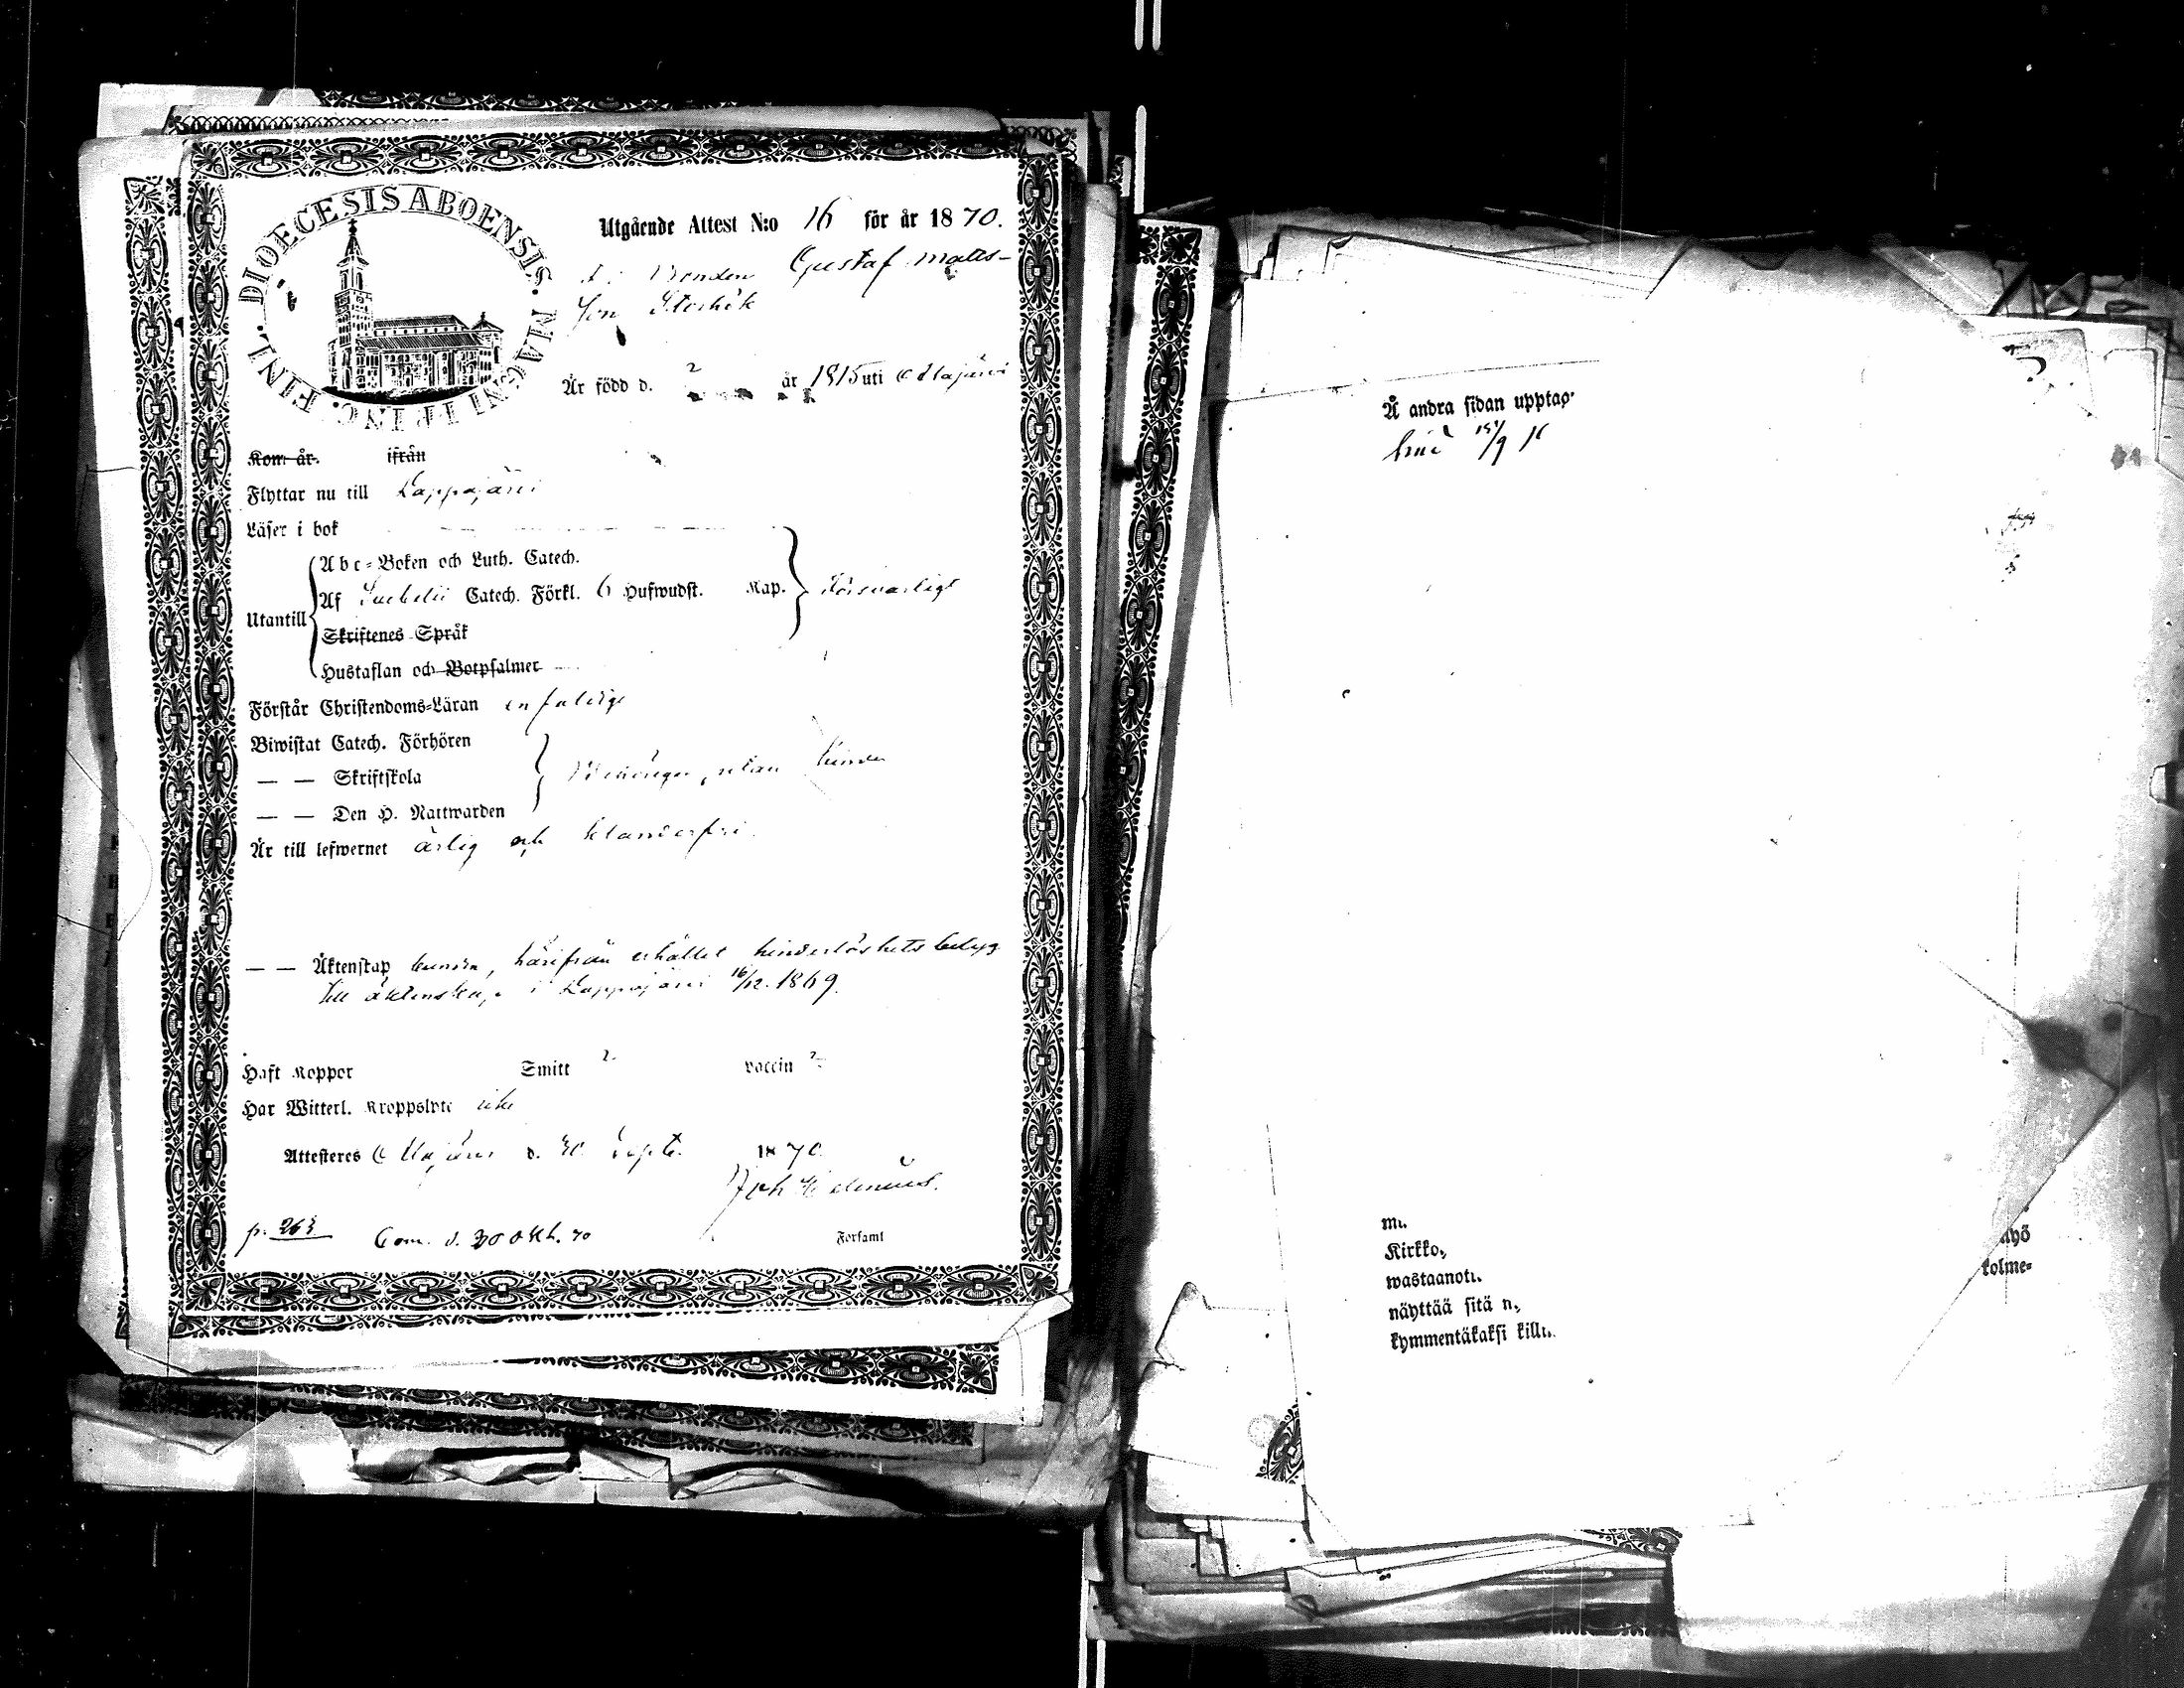 DIOECESIS ABOENSIS. MAGNI PRINC. FINL.
Utgående Attest N:o 16 för år 1870.
Bonden Gustaf Matts-
son Storbäk
Är född d. år 1815 uti Alajärvi
Kom år. ifrån
Flyttar nu till Lappajärvi
Läser i bok
Utantill
Abc-Boken och Luth. Catech.
Af Svebelii Catech. Förkl. 6 Hufwudst. Kap. försvarligt
Skriftenes Språk
Hustaflan och Botpsalmer
Förstår Christendoms-Läran enfaldigt
Biwistat Catech. Förhören
— — Skriftskola utan hinder
— — Den H. Nattwarden
Är till lefwernet ärlig och klanderfri.
— — Äktenskap härifrån erhållet hinderlöshets betyg
till äktenskap i Lappajärvi 16/12 1869.
Haft Koppor Smitt ? vaccin ?
Har Witterl. Kroppslyte icke
Attesteres Alajärvi d. 30 Septb. 1870
Joh
p. 263 Com. d. 30 Okt. 70 Församl
Å andra sidan upptag
15/9
mu
Kirkko
wastaanotta
näyttää sitä n
kymmentäkaksi killi
yö
kolme-